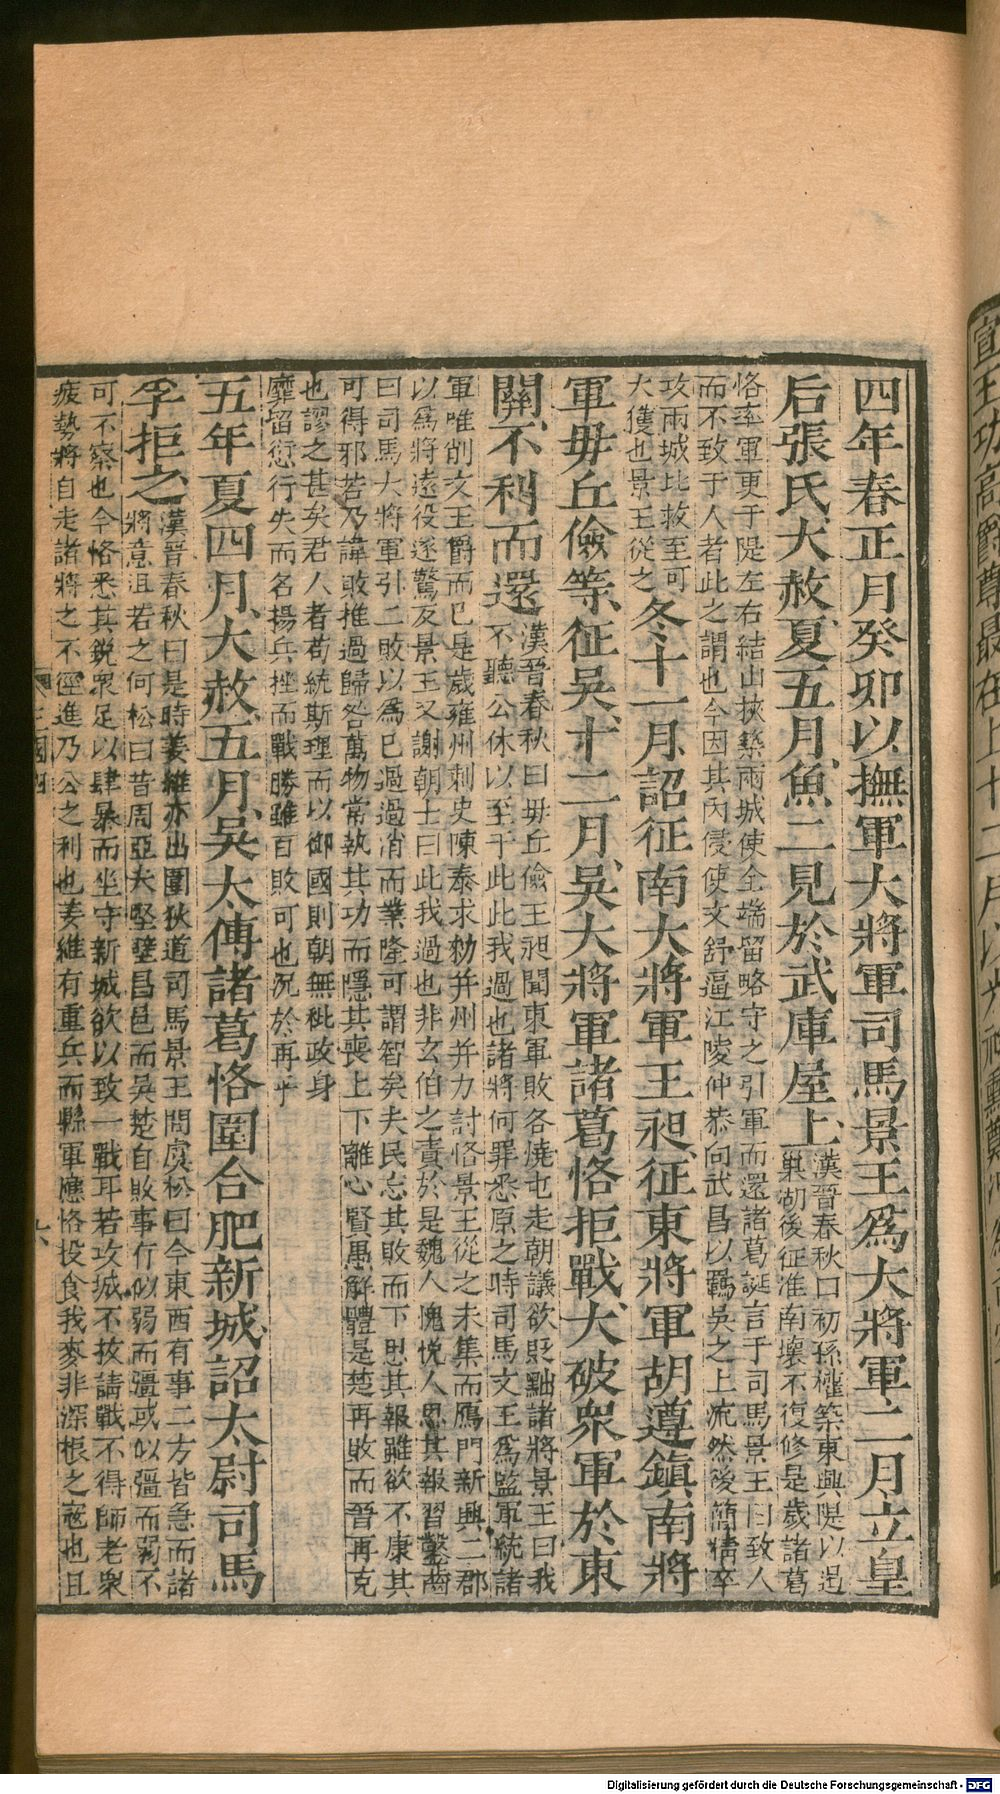 四年春正月癸卯以撫軍大將軍司馬景王爲大將軍二月立皇
后張氏大赦夏五月魚二見於武庫屋上漢晉春秋曰初孫權築東興隄以遏
巢湖後征淮南壞不復修是歲諸葛
恪率軍更于隄左右結山挾築兩城使全端留略守之引軍而還諸葛誕言于司馬景王曰致人
而不致于人者此之謂也今因其內侵使文舒逼江陵仲恭向武昌以羈吳之上流然後簡精卒
攻兩城比救至可
大獲也景王從之冬十一月詔征南大將軍王昶征東將軍胡遵鎮南將
軍毋丘儉等征吳十二月吳大將軍諸葛恪拒戰大破衆軍於東
關不利而還漢晉春秋曰毋丘儉王昶聞東軍敗各燒屯走朝議欲貶黜諸將景王曰我
不聽公休以至于此此我過也諸將何罪悉原之時司馬文王爲監軍統諸
軍唯削文王爵而已是歲雍州刺史陳泰求勑并州并力討恪景王從之未集而鴈門新興二郡
以爲將遠役遂驚反景王又謝朝士曰此我過也非玄伯之責於是魏人愧悅人思其報習鑿齒
曰司馬大將軍引二敗以爲已過過消而業隆可謂智矣夫民忘其敗而下思其報雖欲不康其
可得邪若乃諱敗推過歸咎萬物常執其功而隱其喪上下離心賢愚解體是楚再敗而晉再克
也謬之甚矣君人者苟統斯理而以御國則朝無秕政身
靡留愆行失而名揚兵挫而戰勝雖百敗可也況於再乎
五年夏四月大赦五月吳太傅諸葛恪圍合肥新城詔太尉司馬
孚拒之漢晉春秋曰是時姜維亦出圍狄道司馬景王問虞松曰今東西有事二方皆急而諸
將意沮若之何松曰昔周亞夫堅壁昌邑而吳楚自敗事有似弱而彊或似彊而弱不
可不察也今恪悉其銳衆足以肆暴而坐守新城欲以致一戰耳若攻城不拔請戰不得師老衆
疲勢將自走諸將之不徑進乃公之利也姜維有重兵而縣軍應恪投食我麥非深根之寇也且
三國四
六
宣王功高爵尊最在上十二月以
Digitalisierung gefördert durch die Deutsche Forschungsgemeinschaft - DFG